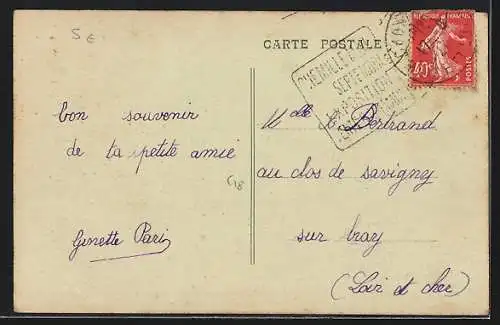 5 E
CARTE POSTALE
REPUBLIQUE FRANÇAISE
40c
POSTES
SEPTEMBRE
EXPOSITION
bon souvenir
de ta petite amie
Ginette Pari
C18
Melle Bertrand
au clos de savigny
sur bray
(Loir et cher)